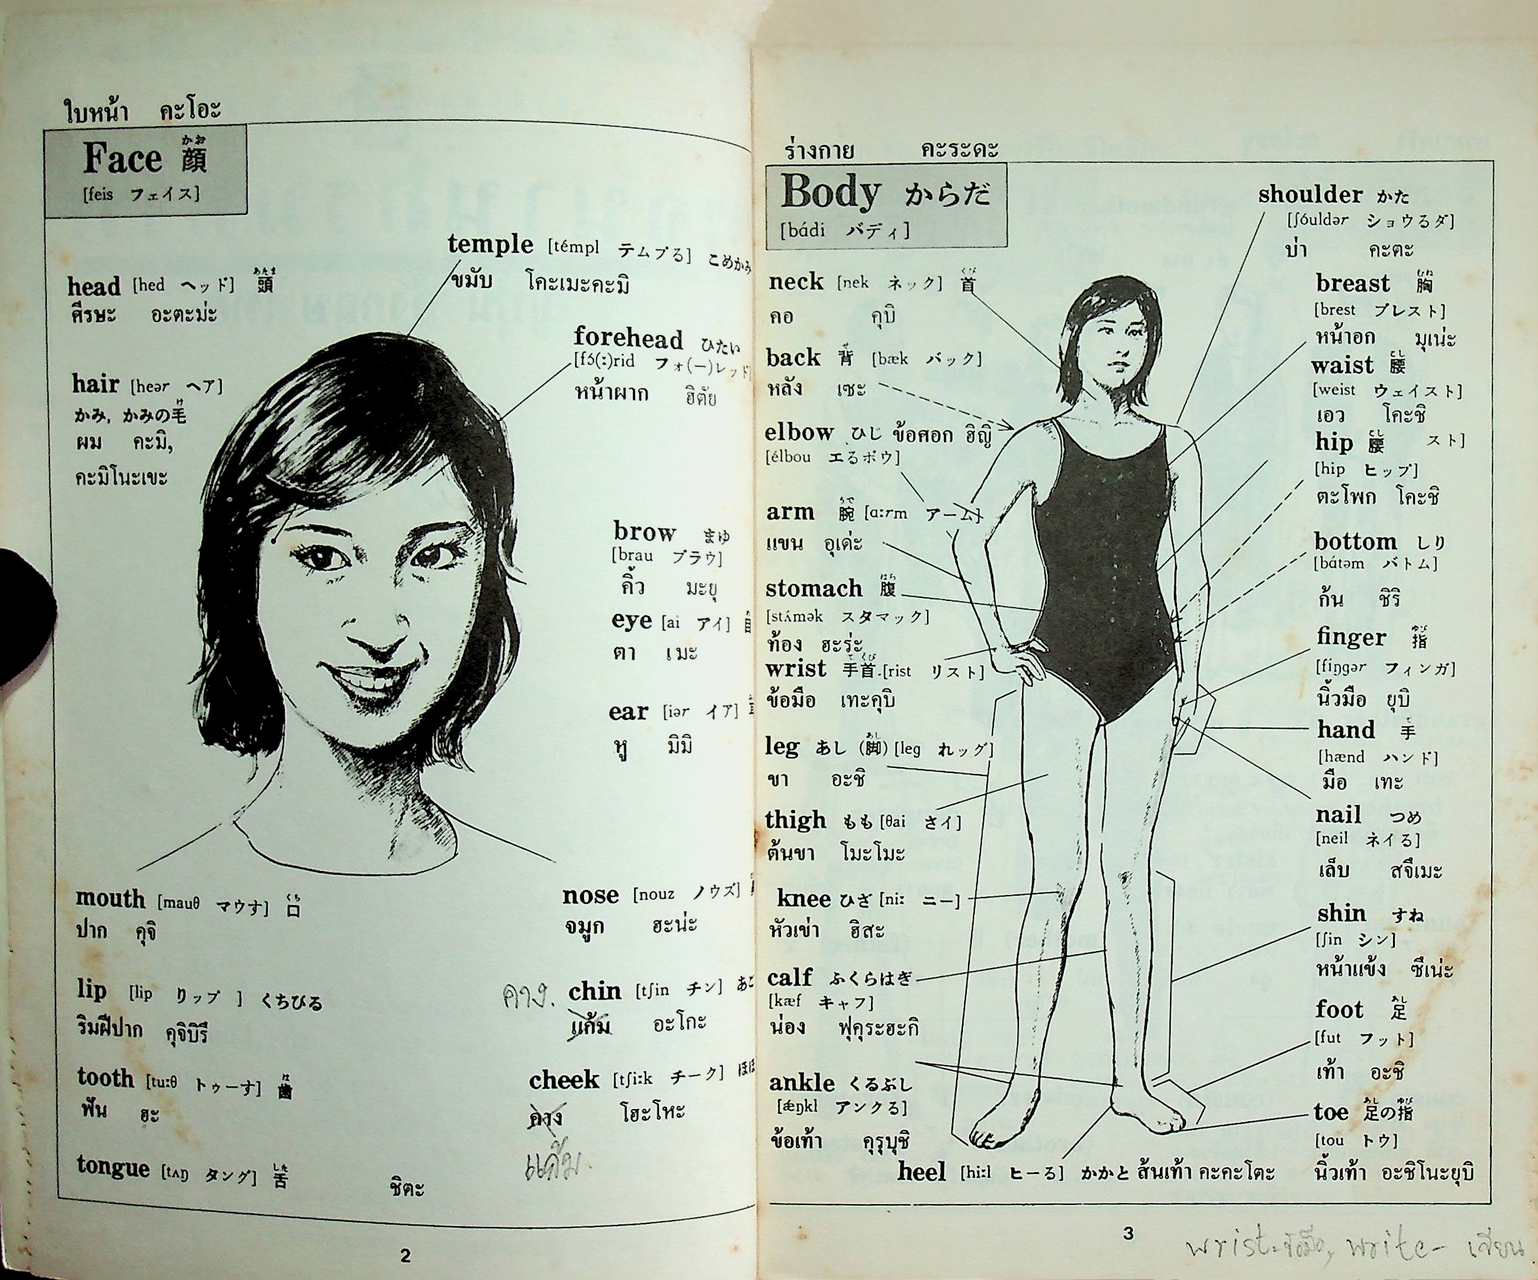 ใบหน้า คะโอะ
Face 顔 かお
[feis フェイス]
temple [témpl テムプる] こめかみ
ขมับ โคะเมะคะมิ
head [hed ヘッド] 頭 あたま
ศีรษะ อะตะม่ะ
forehead ひたい
[fɔ́(ː)rid フォ(ー)レッド]
หน้าผาก ฮิตัย
hair [heər ヘア]
かみ, かみの毛 け
ผม คะมิ,
คะมิโนะเขะ
brow まゆ
[brau ブラウ]
คิ้ว มะยุ
eye [ai アイ]
ตา เมะ
ear [iər イア]
หู มิมิ
mouth [mauθ マウす] 口 くち
ปาก คุจิ
nose [nouz ノウズ]
จมูก ฮะน่ะ
lip [lip りップ ] くちびる
ริมฝีปาก คุจิบิรึ
คาง. chin [tʃin チン] あご
แก้ม อะโกะ
tooth [tuːθ トゥーす] 歯 は
ฟัน ฮะ
cheek [tʃiːk チーク] ほほ
คาง โฮะโหะ
แก้ม.
tongue [tʌŋ タング] 舌 した
ชิตะ
2
ร่างกาย คะระดะ
Body からだ
[bádi バディ]
shoulder かた
[ʃóuldər ショウるダ]
บ่า คะตะ
neck [nek ネック] 首 くび
คอ คุบิ
breast 胸 むね
[brest ブレスト]
หน้าอก มุเน่ะ
back 背 せ [bæk バック]
หลัง เซะ
waist 腰 こし
[weist ウェイスト]
เอว โคะชิ
elbow ひじ ข้อศอก ฮิญิ
[élbou エるボウ]
hip 腰 こし スト]
[hip ヒップ]
ตะโพก โคะชิ
arm 腕 うで [ɑːrm アーム]
แขน อุเด่ะ
bottom しり
[bátəm バトム]
ก้น ชิริ
stomach 腹 はら
[stʌ́mək スタマック]
ท้อง ฮะร่ะ
finger 指 ゆび
[fíŋgər フィンガ]
นิ้วมือ ยุบิ
wrist 手首 てくび [rist リスト]
ข้อมือ เทะคุบิ
hand 手 て
[hænd ハンド]
มือ เทะ
leg あし (脚) あし [leg れッグ]
ขา อะชิ
nail つめ
[neil ネイる]
เล็บ สจึเมะ
thigh もも [θai さイ]
ต้นขา โมะโมะ
knee ひざ [niː ニー]
หัวเข่า ฮิสะ
shin すね
[ʃin シン]
หน้าแข้ง ซึเน่ะ
calf ふくらはぎ
[kæf キャフ]
น่อง ฟุคุระฮะกิ
foot 足 あし
[fut フット]
เท้า อะชิ
ankle くるぶし
[ǽŋkl アンクる]
ข้อเท้า คุรุบุชิ
toe 足の指 あし ゆび
[tou トウ]
นิ้วเท้า อะชิโนะยุบิ
heel [hiːl ヒーる] かかと ส้นเท้า คะคะโตะ
3
wrist-ข้อมือ, write- เขียน